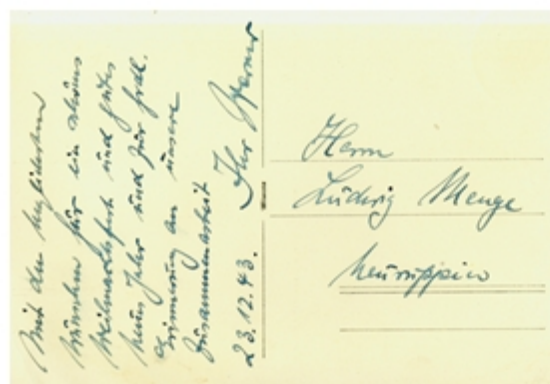 Mit den herzlichsten
Wünschen für ein schönes
Weihnachtsfest und gutes
neues Jahr und zur frdl.
Erinnerung an unsere
Zusammenarbeit
23.12.43. Ihr Werner
Herrn
Ludwig Menge
Neuruppin